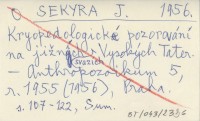 SEKYRA J. 1956.
Kryopedologické pozorování
na jižných svazích Vysokých Tater.
– Anthropozoikum 5,
r. 1955 (1956), Praha.
s. 107-122, Sum.